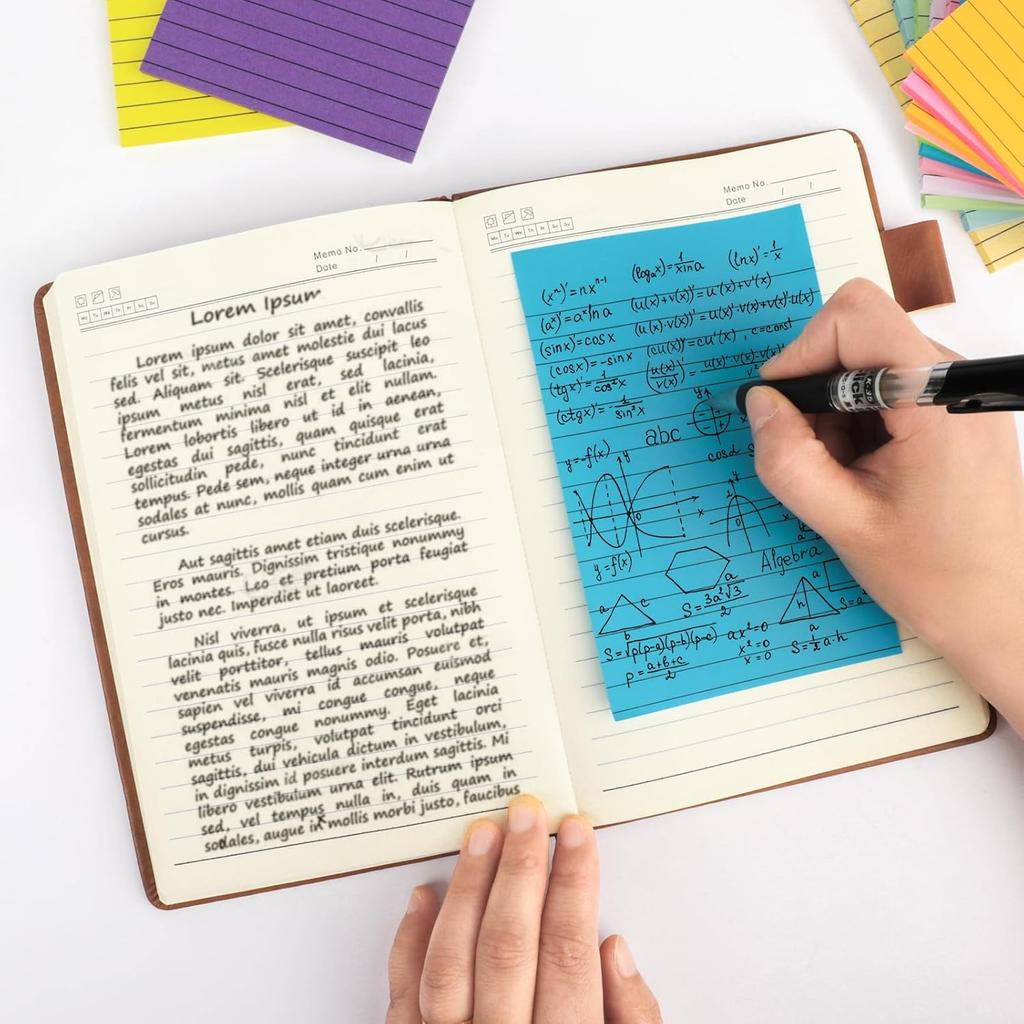 Memo No.
Date / /
Mo Tu We Th Fr Sa Su
Lorem Ipsum
Lorem ipsum dolor sit amet, convallis
felis vel sit, metus amet molestie dui lacus
sed. Aliquam sit. Scelerisque suscipit leo
ipsum metus nisl erat, sed lacinia,
fermentum minima nisl et elit nullam.
Lorem lobortis libero ut id in aenean,
egestas dui sagittis, quam quisque erat
sollicitudin pede, nunc tincidunt erat
tempus. Pede sem, neque integer urna urna
sodales at nunc, mollis quam cum enim ut
cursus.
Aut sagittis amet etiam duis scelerisque.
Eros mauris. Dignissim tristique nonummy
in montes. Leo et pretium porta feugiat
justo nec. Imperdiet ut laoreet.
Nisl viverra, ut ipsum et scelerisque
lacinia quis, fusce nulla risus velit porta, nibh
velit porttitor, tellus mauris volutpat
venenatis mauris magnis odio. Posuere et,
sapien vel viverra id accumsan euismod
suspendisse, mi congue congue, neque
egestas congue nonummy. Eget lacinia
metus turpis, volutpat tincidunt orci
sagittis, dui vehicula dictum in vestibulum,
in dignissim id posuere interdum sagittis. Mi
libero vestibulum urna elit. Rutrum ipsum
sed, vel tempus nulla in, duis quam in
sodales, augue in mollis morbi justo, faucibus
Memo No.
Date / /
Mo Tu We Th Fr Sa Su
(xⁿ)'=nxⁿ⁻¹ (logₐx)'=1/(x ln a) (lnx)'=1/x
(aˣ)'=aˣln a (u(x)+v(x))'=u'(x)+v'(x)
(sinx)'=cosx (u(x)·v(x))'=u'(x)·v(x)+v'(x)·u(x)
(cosx)'=-sinx (cu(x))'=cu'(x), c=const
(tgx)'=1/cos²x (u(x)/v(x))'=
(ctgx)'=-1/sin²x
abc
y=-f(x) y
cosα
x
y=f(x)
Algebra
S=3a²√3/2 a
a c b
h a a
S=√p(p-a)(p-b)(p-c) ax²=0 S=½a·h
p=(a+b+c)/2 x²=0
x=0